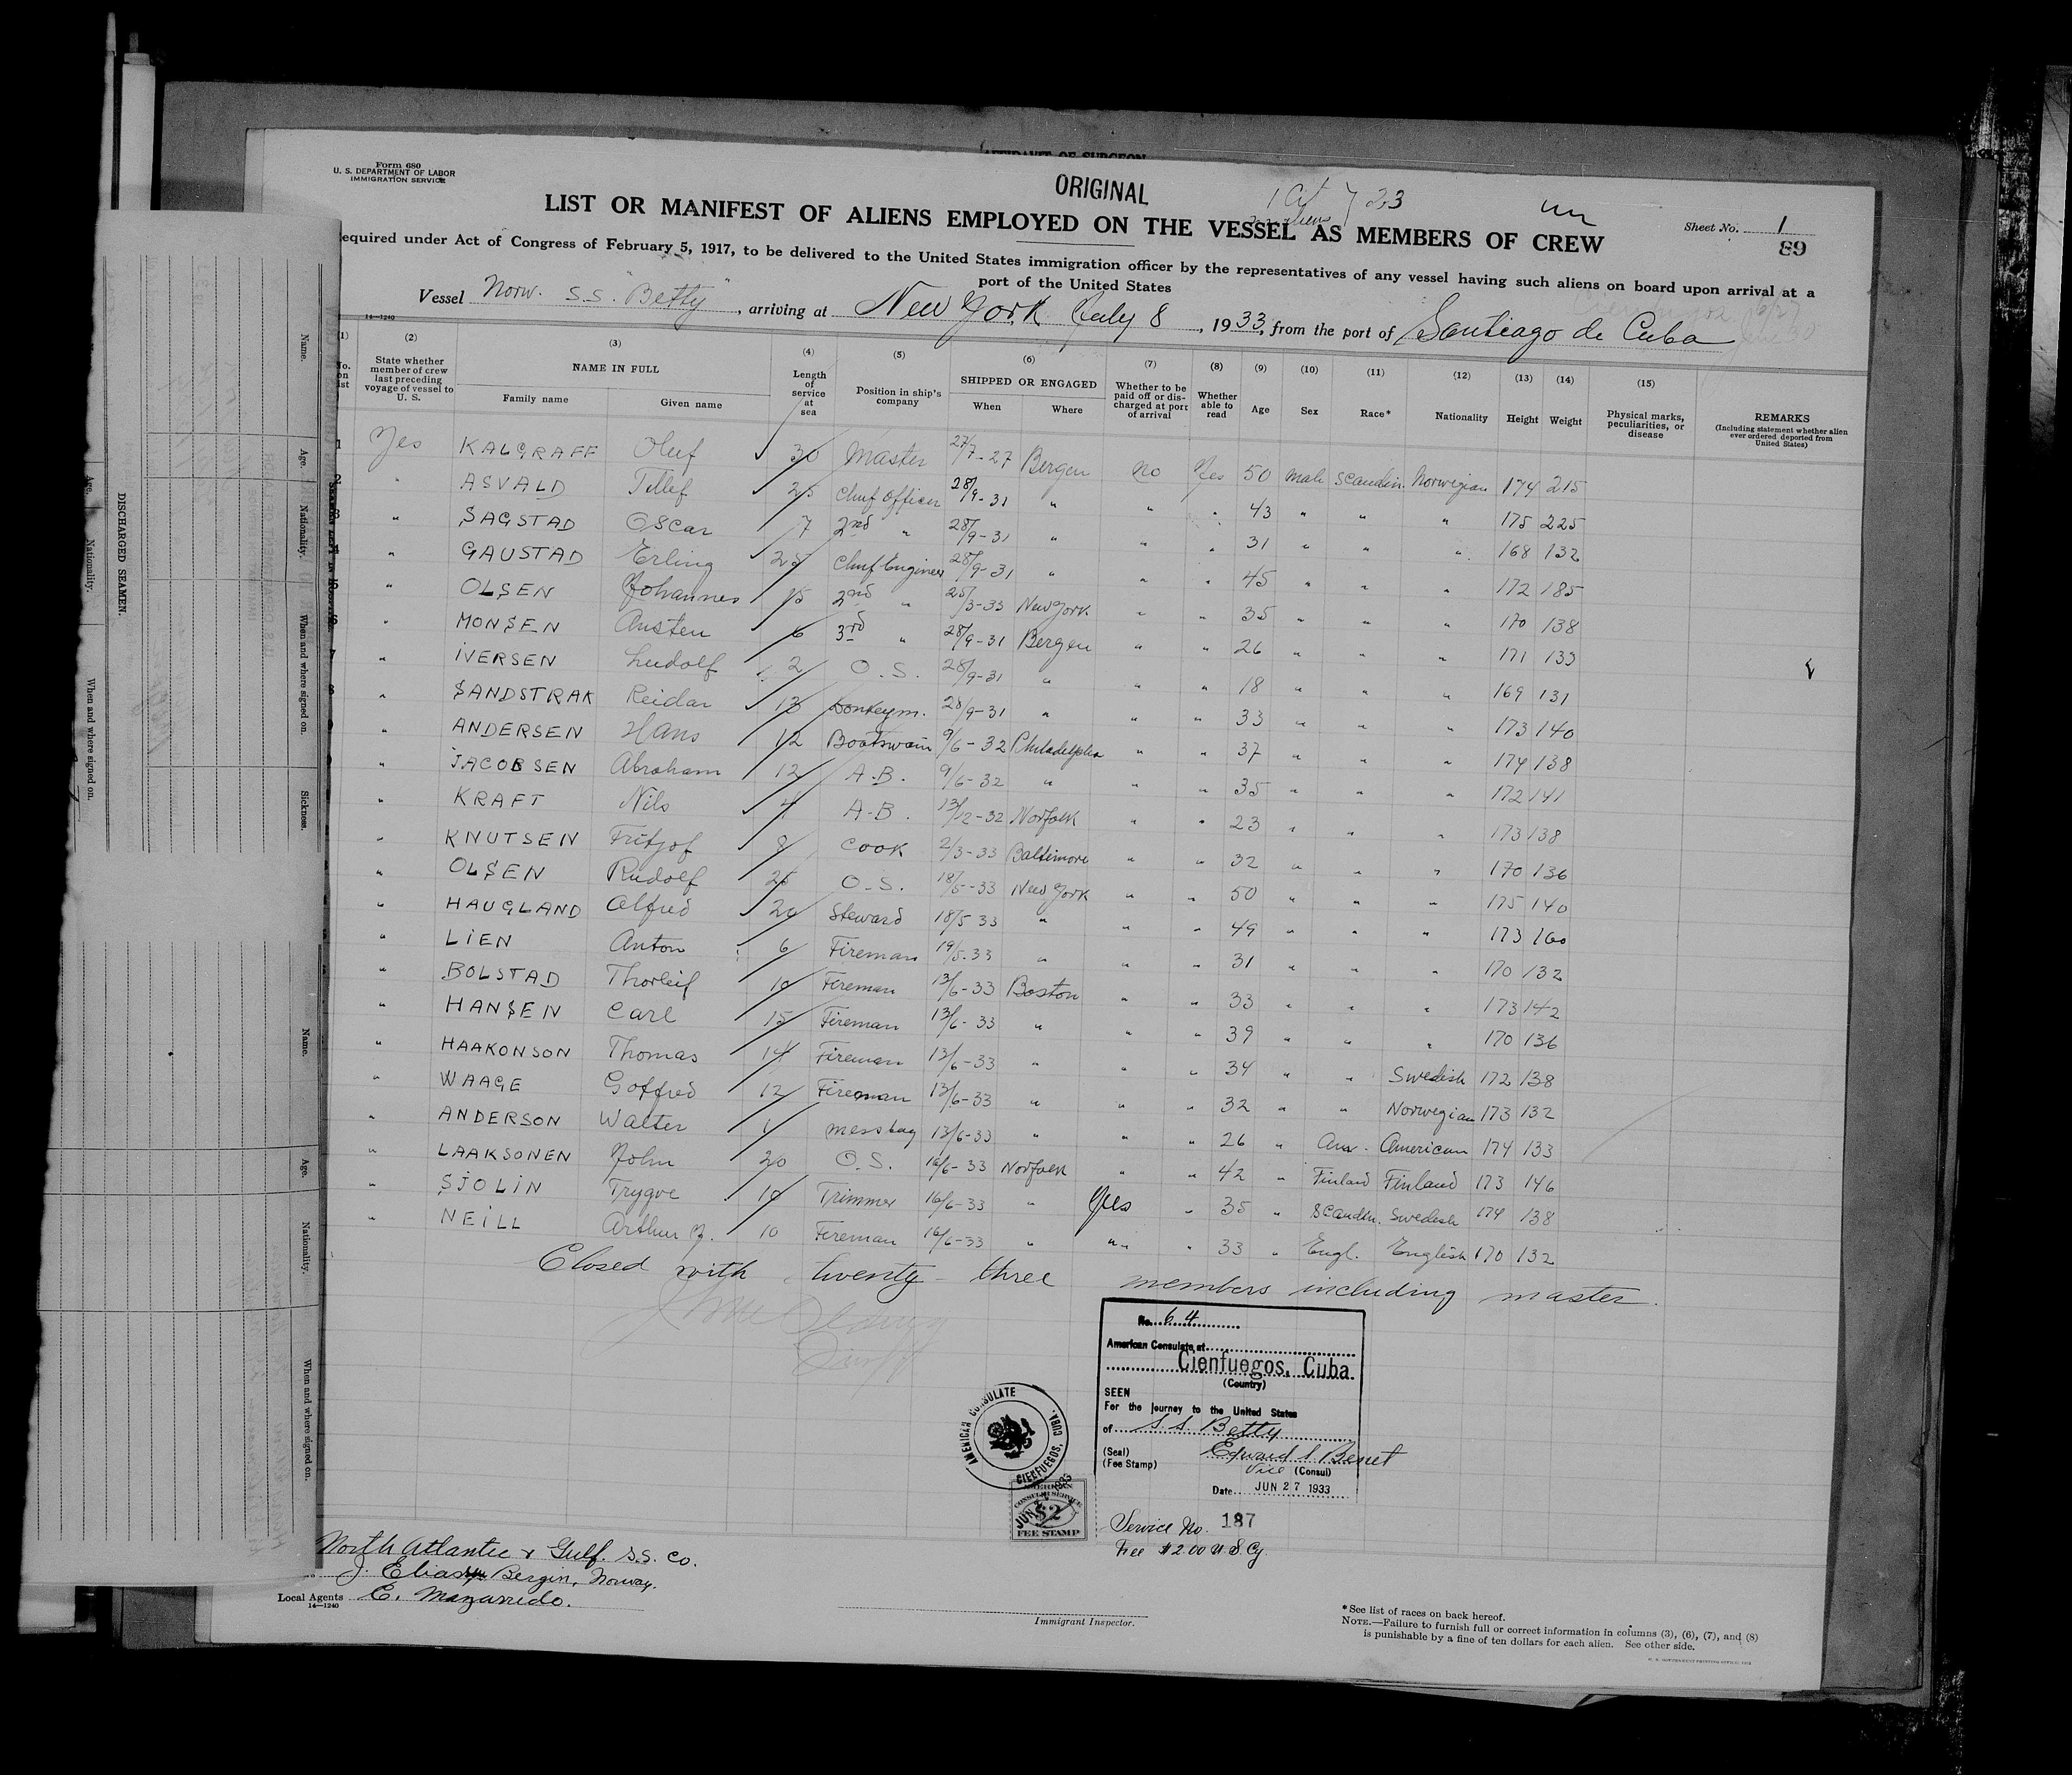 AFFIDAVIT OF SURGEON
Form 680
U. S. DEPARTMENT OF LABOR
IMMIGRATION SERVICE
ORIGINAL
LIST OR MANIFEST OF ALIENS EMPLOYED ON THE VESSEL AS MEMBERS OF CREW
Sheet No. 1
89
equired under Act of Congress of February 5, 1917, to be delivered to the United States immigration officer by the representatives of any vessel having such aliens on board upon arrival at a
port of the United States
Vessel Norw. S.S. "Betty", arriving at New York July 8, 1933, from the port of Santiago de Cuba
14—1240
(1) (2) (3) (4) (5) (6) (7) (8) (9) (10) (11) (12) (13) (14) (15)
No. on list State whether member of crew last preceding voyage of vessel to U. S. NAME IN FULL Family name Given name Length of service at sea Position in ship's company SHIPPED OR ENGAGED When Where Whether to be paid off or discharged at port of arrival Whether able to read Age Sex Race* Nationality Height Weight Physical marks, peculiarities, or disease REMARKS (Including statement whether alien ever ordered deported from United States)
1 Yes KALGRAFF Oluf 30 Master 27/7-27 Bergen No Yes 50 Male Scandin. Norwegian 174 215
2 " ASVALD Tellef 25 Chief Officer 28/9-31 " " " 43 " " " 175 225
3 " SAGSTAD Oscar 7 2nd " 28/9-31 " " " 31 " " " 168 132
4 " GAUSTAD Erling 25 Chief Engineer 28/9-31 " " " 45 " " " 172 185
5 " OLSEN Johannes 15 2nd " 25/3-33 New York " " 35 " " " 170 138
6 " MONSEN Austen 6 3rd " 28/9-31 Bergen " " 26 " " " 171 133
7 " IVERSEN Ludolf 2 O.S. 28/9-31 " " " 18 " " " 169 131
8 " SANDSTRAK Reidar 13 Donkeym. 28/9-31 " " " 33 " " " 173 140
" ANDERSEN Hans 12 Boatswain 9/6-32 Philadelphia " " 37 " " " 174 138
" JACOBSEN Abraham 12 A.B. 9/6-32 " " " 35 " " " 172 141
" KRAFT Nils 4 A.B. 13/12-32 Norfolk " " 23 " " " 173 138
" KNUTSEN Fritjof 8 Cook 2/3-33 Baltimore " " 32 " " " 170 136
" OLSEN Rudolf 25 O.S. 18/5-33 New York " " 50 " " " 175 140
" HAUGLAND Alfred 20 Steward 18/5 33 " " " 49 " " " 173 160
" LIEN Anton 6 Fireman 19/5.33 " " " 31 " " " 170 132
" BOLSTAD Thorleif 10 Fireman 13/6-33 Boston " " 33 " " " 173 142
" HANSEN Carl 15 Fireman 13/6-33 " " " 39 " " " 170 136
" HAAKONSON Thomas 14 Fireman 13/6-33 " " " 34 " " Swedish 172 138
" WAAGE Goffred 12 Fireman 13/6-33 " " " 32 " " Norwegian 173 132
" ANDERSON Walter 1 messboy 13/6-33 " " " 26 " Am. American 174 133
" LAAKSONEN John 20 O.S. 16/6-33 Norfolk " " 42 " Finland Finland 173 146
" SJOLIN Trygve 10 Trimmer 16/6-33 " Yes " 35 " Scandin. Swedish 174 138
" NEILL Arthur J. 10 Fireman 16/6-33 " " " 33 " Engl. English 170 132
Closed with twenty-three members including master.
No. 64
American Consulate at
Cienfuegos, Cuba.
(Country)
SEEN
For the journey to the United States
of S.S. Betty
(Seal) Edward S Benet
(Fee Stamp) Vice (Consul)
Date JUN 27 1933
AMERICAN CONSULATE
CIENFUEGOS, CUBA.
AMERICAN
CONSULAR SERVICE
$2
FEE STAMP
Service No. 187
Fee $2.00 U.S. Cy.
North Atlantic & Gulf. S.S. Co.
Bergen, Norway.
Local Agents E. Mazarredo.
14—1240
Immigrant Inspector.
*See list of races on back hereof.
NOTE.—Failure to furnish full or correct information in columns (3), (6), (7), and (8)
is punishable by a fine of ten dollars for each alien. See other side.
U. S. GOVERNMENT PRINTING OFFICE
DISCHARGED SEAMEN.
Name.
Age.
Nationality.
When and where signed on.
Sickness.
Name.
Age.
Nationality.
When and where signed on.
Age.
Nationality.
When and where signed on.